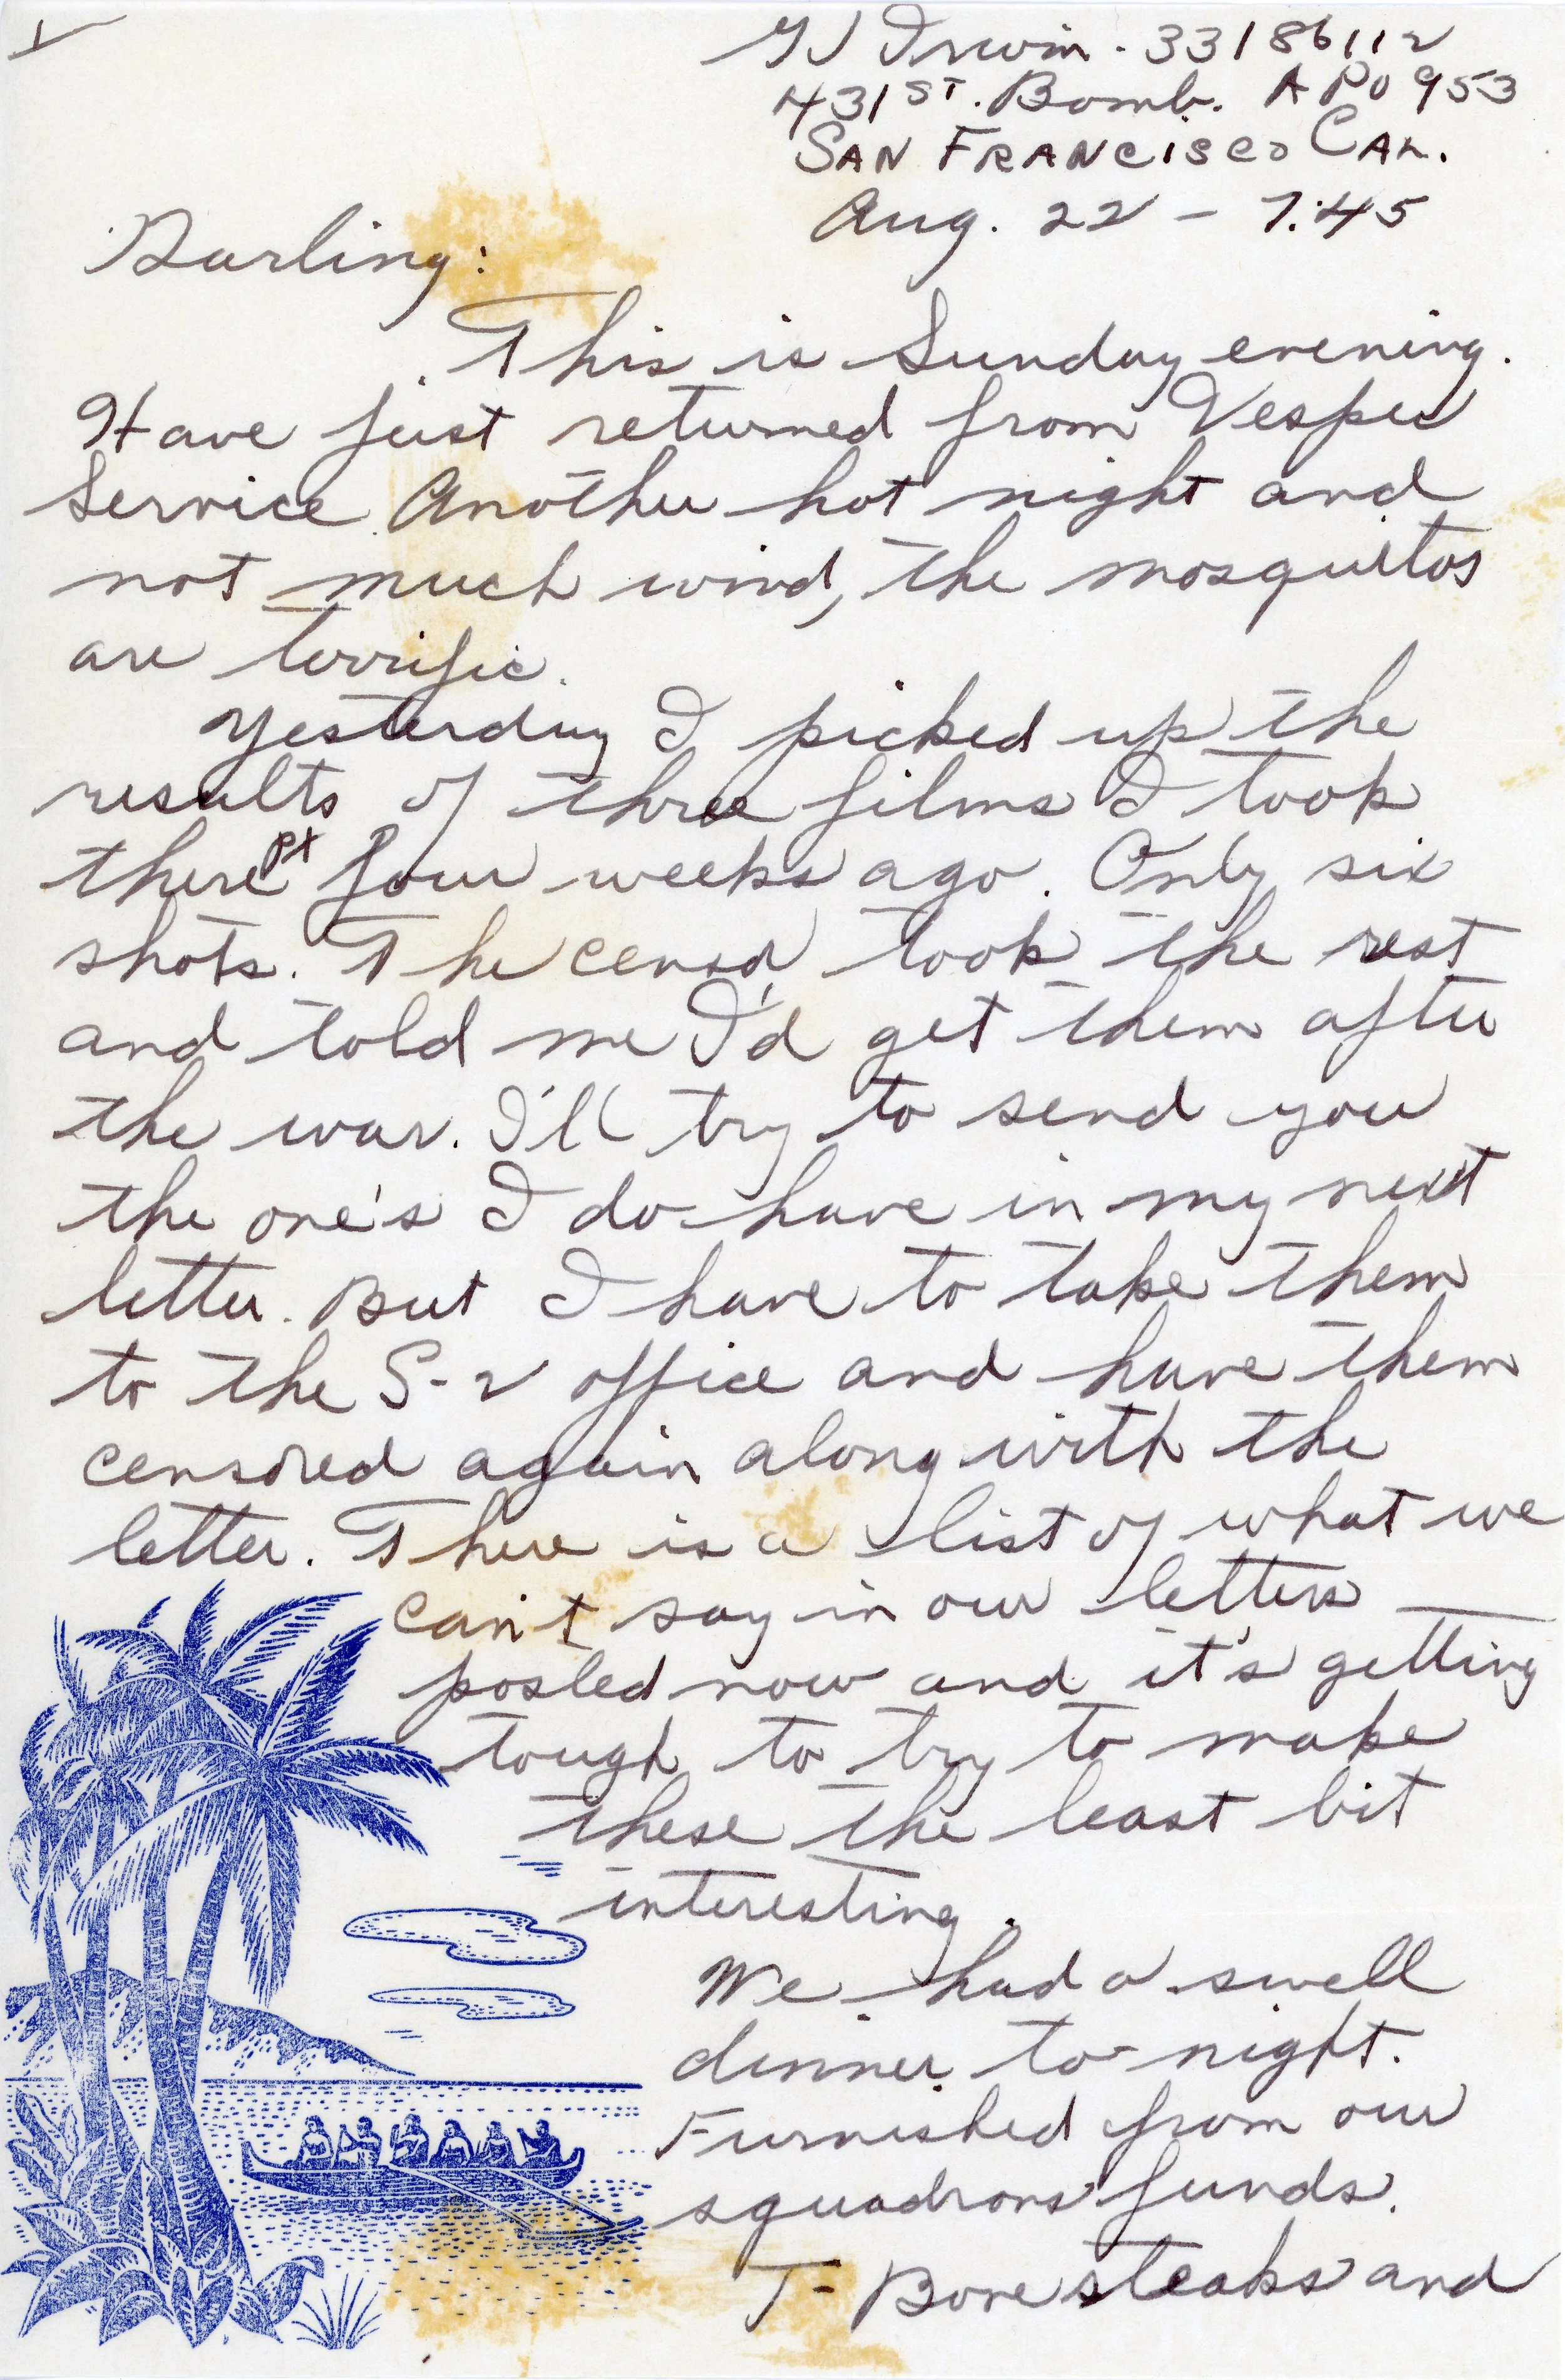 1
GJ Irwin - 33186112
431ST. Bomb. APO 953
SAN FRANCISCO CAL.
Aug. 22 - 7:45
Darling:
This is Sunday evening.
Have just returned from Vesper
Service. Another hot night and
not much wind, the mosquitos
are terrific.
Yesterday I picked up the
results of three films I took
there PX four weeks ago. Only six
shots. The censor took the rest
and told me I'd get them after
the war. I'll try to send you
the one's I do have in my next
letter. But I have to take them
to the S-2 office and have them
censored again along with the
letter. There is a list of what we
can't say in our letters
posted now and it's getting
tough to try to make
these the least bit
interesting.
We had a swell
dinner to-night.
Furnished from our
squadrons funds.
T-Bone steaks and